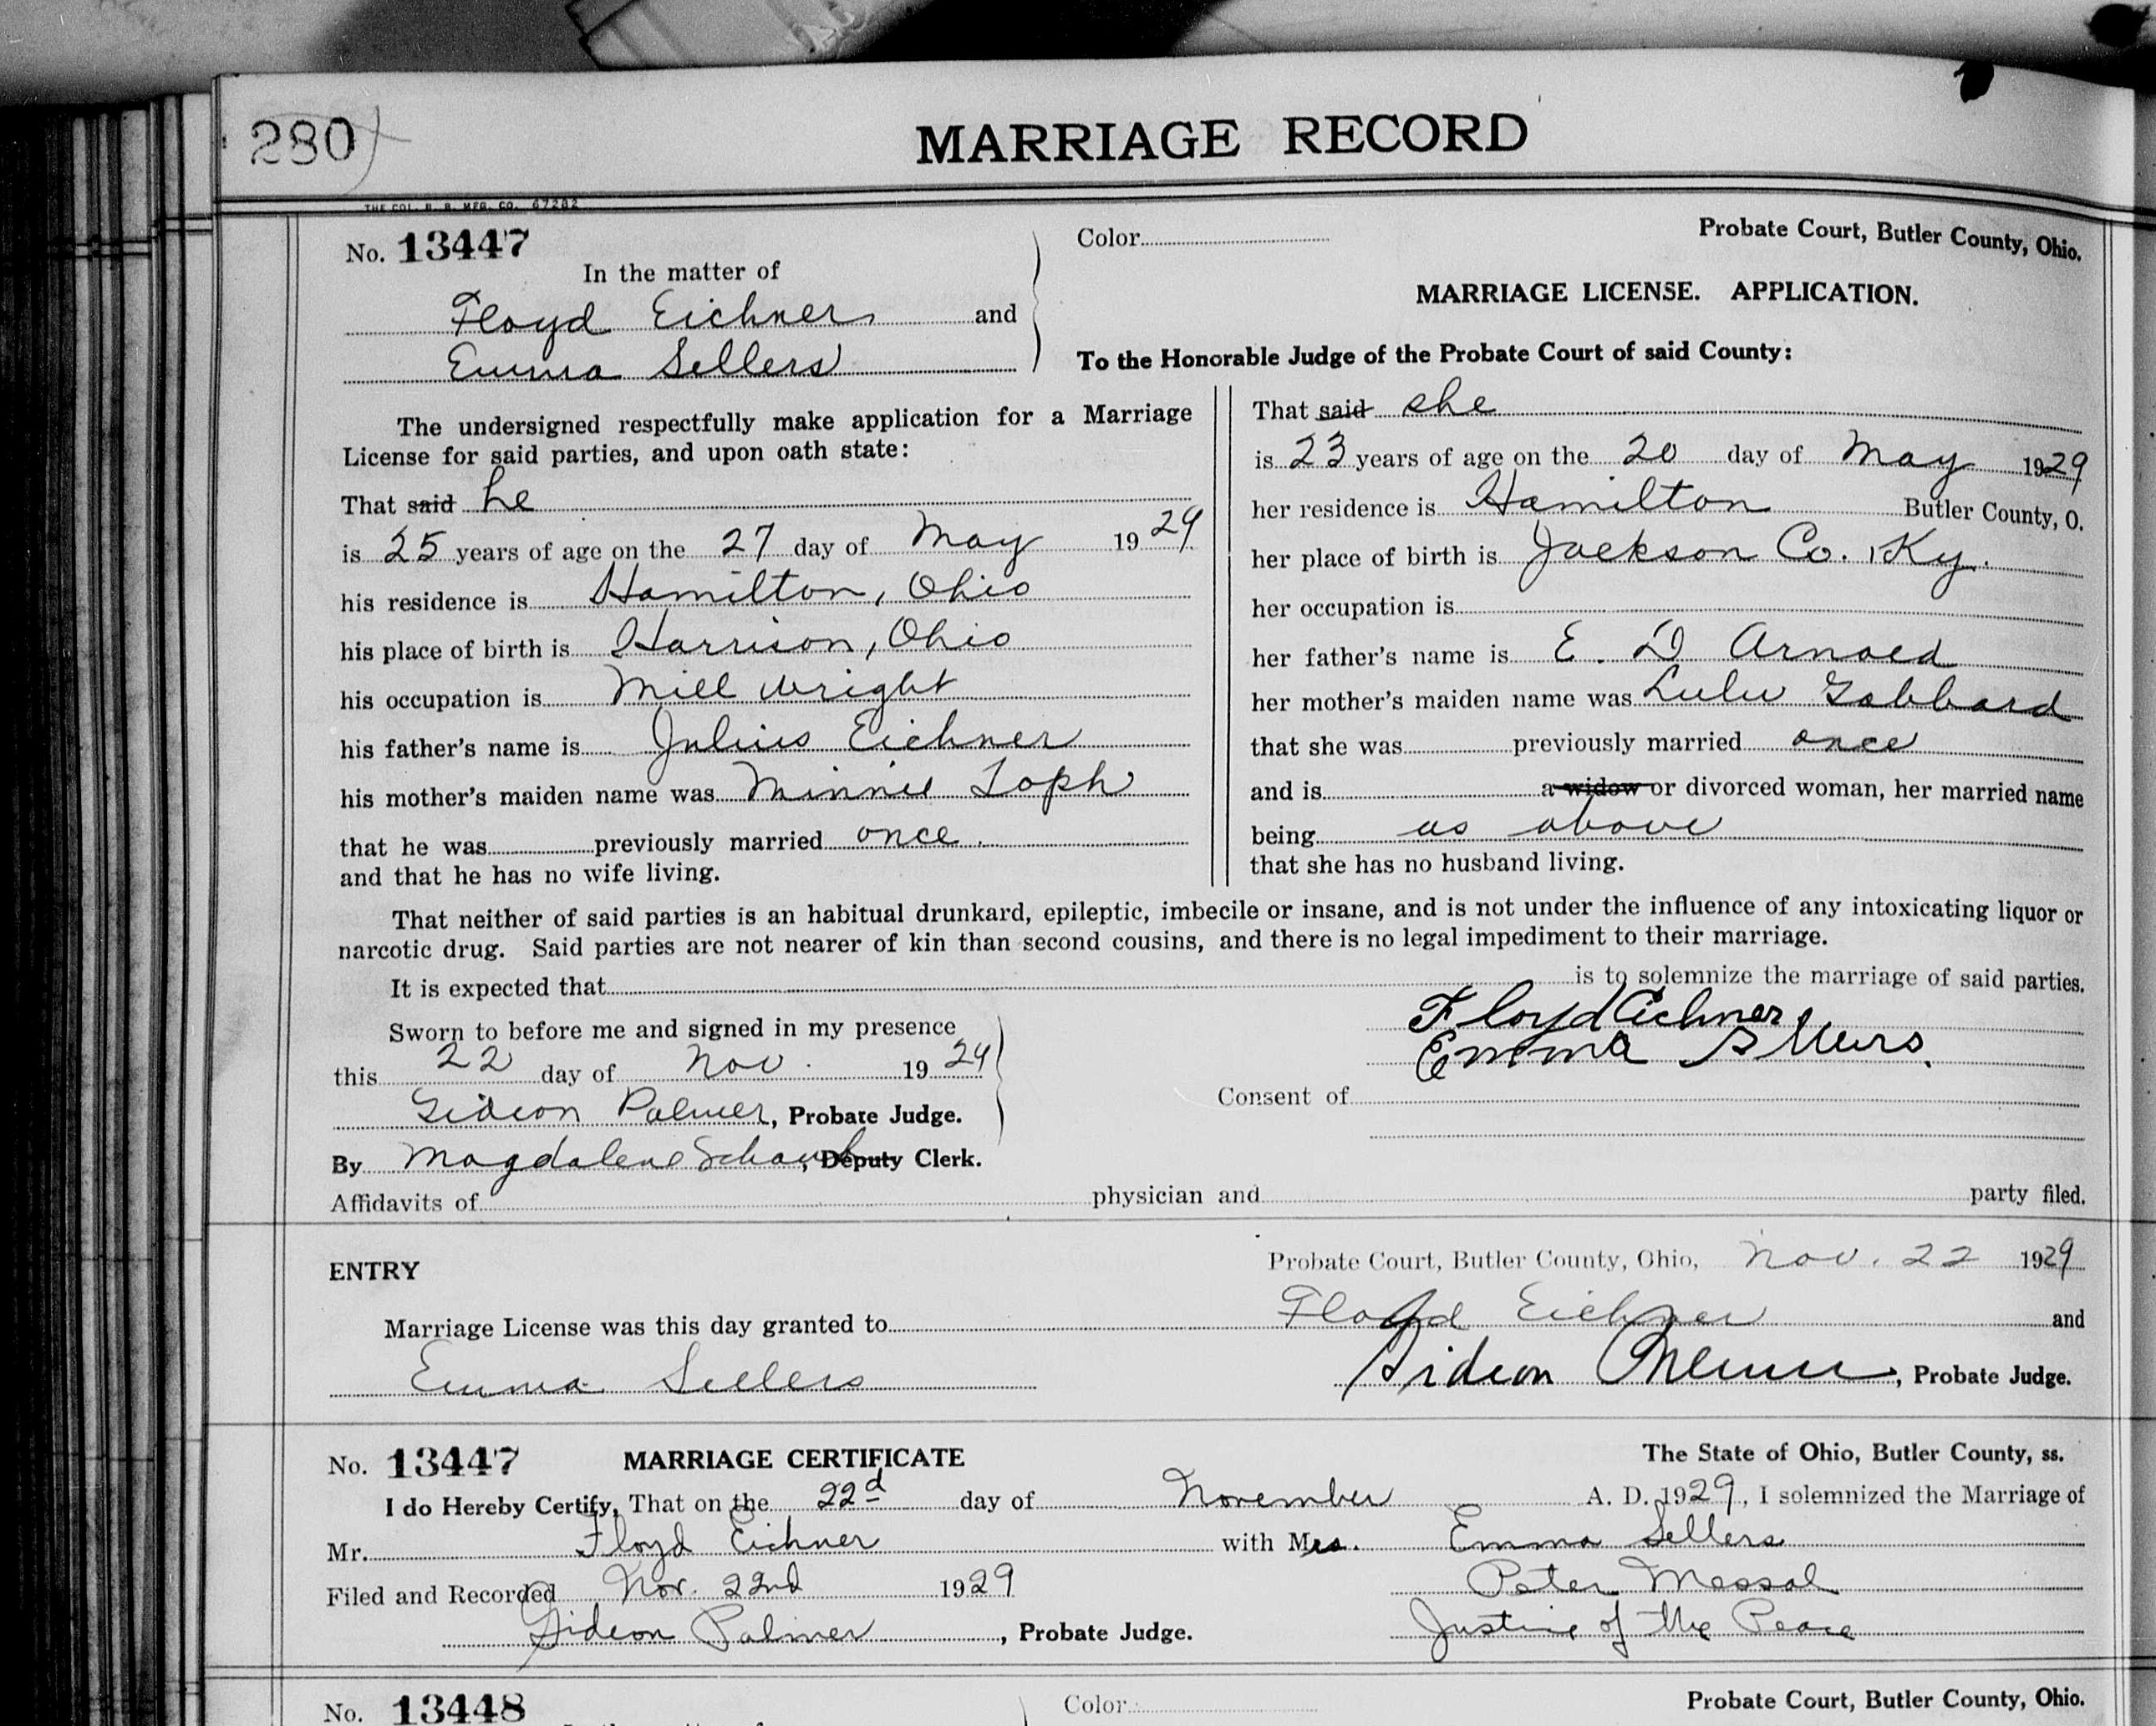 280
MARRIAGE RECORD
THE COL. B. B. MFG. CO. 67282
No. 13447
In the matter of
Floyd Eichner and
Emma Sellers
Color
Probate Court, Butler County, Ohio.
MARRIAGE LICENSE. APPLICATION.
To the Honorable Judge of the Probate Court of said County:
The undersigned respectfully make application for a Marriage
License for said parties, and upon oath state:
That said he
is 25 years of age on the 27 day of May 1929
his residence is Hamilton, Ohio
his place of birth is Harrison, Ohio
his occupation is Mill wright
his father's name is Julius Eichner
his mother's maiden name was Minnie Toph
that he was previously married once.
and that he has no wife living.
That said she
is 23 years of age on the 20 day of May 1929
her residence is Hamilton Butler County, O.
her place of birth is Jackson Co. Ky.
her occupation is
her father's name is E. D Arnold
her mother's maiden name was Lulu Gabbard
that she was previously married once
and is a widow or divorced woman, her married name
being as above
that she has no husband living.
That neither of said parties is an habitual drunkard, epileptic, imbecile or insane, and is not under the influence of any intoxicating liquor or
narcotic drug. Said parties are not nearer of kin than second cousins, and there is no legal impediment to their marriage.
It is expected that is to solemnize the marriage of said parties.
Sworn to before me and signed in my presence
this 22 day of Nov. 1929
Gideon Palmer, Probate Judge.
By Magdalene Schaub, Deputy Clerk.
Floyd Eichner
Emma Sellers.
Consent of
Affidavits of physician and party filed.
ENTRY
Probate Court, Butler County, Ohio, Nov. 22 1929
Marriage License was this day granted to Floyd Eichner and
Emma Sellers
Gideon Palmer, Probate Judge.
No. 13447 MARRIAGE CERTIFICATE The State of Ohio, Butler County, ss.
I do Hereby Certify, That on the 22d day of November A. D. 1929, I solemnized the Marriage of
Mr. Floyd Eichner with Mrs. Emma Sellers
Filed and Recorded Nov. 22nd 1929 Peter Messal
Gideon Palmer, Probate Judge. Justice of the Peace
No. 13448 Color Probate Court, Butler County, Ohio.